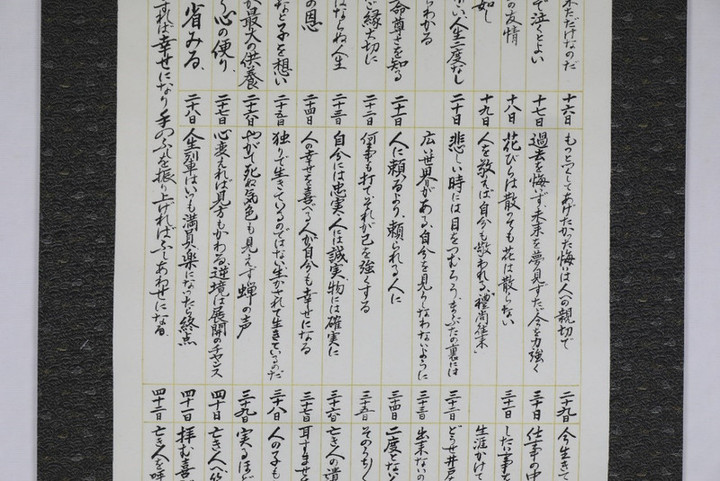 来ただけなのだ
で泣くとよい
の友情
如し
い人生二度なし
らわかる
命尊さを知る
縁大切に
はならね人生
の恩
など子を想い
最大の供養
心の便り
省みる
十六日 もっとつくしてあげたかった悔いは人への親切で
十七日 過去を悔いず、未来を夢見ず、ただ今を力強く
十八日 花びらは散っても花は散らない
十九日 人を敬えば自分も敬われる、「禮尚往来」
二十日 悲しい時には目をつむろう、まぶたの裏には
広い世界がある、自分を見うしなわないように
二十一日 人に頼るより、頼られる人に
二十二日 何事も打てそれが己を強くする
二十三日 自分には忠実、人には誠実、物には確実に
二十四日 人の幸せを喜べる人が自分も幸せになる
二十五日 独りで生きているのではない、生かされて生きているのだ
二十六日 やがて死ぬ気色も見えず蝉の声
二十七日 心変えれば見方もかわる、逆境は展開のチャンス
二十八日 人生列車はいつも満員、楽になったら終点
すれば幸せになり手のふしを振り上げればふしあわせになる
二十九日 今生きて
三十日 仕事の中
三十一日 したい事を
生涯かけて
三十二日 どうせ井戸
三十三日 出来ないの
三十四日 二度とない
三十五日 そのうち
三十六日 亡き人の遺
三十七日 耳すませ
三十八日 人の子も
三十九日 実るほど
四十日 亡き人へ
四十一日 拝む喜
四十二日 亡き人を呼